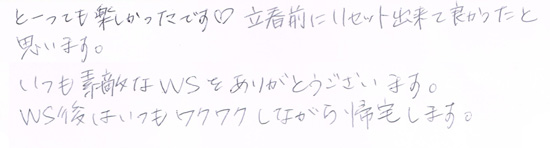 とーっても楽しかったです♡ 立春前にリセット出来て良かったと
思います。
いつも素敵なWSをありがとうございます。
WS後はいつもワクワクしながら帰宅します。